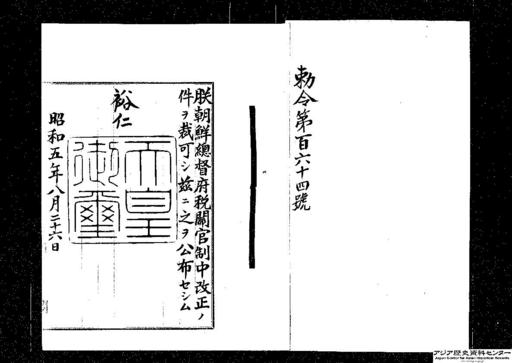 勅令第百六十四號
朕朝鮮總督府税關官制中改正ノ
件ヲ裁可シ玆ニ之ヲ公布セシム
裕仁
天皇
御璽
昭和五年八月二十六日
アジア歴史資料センター
Japan Center for Asian Historical Records